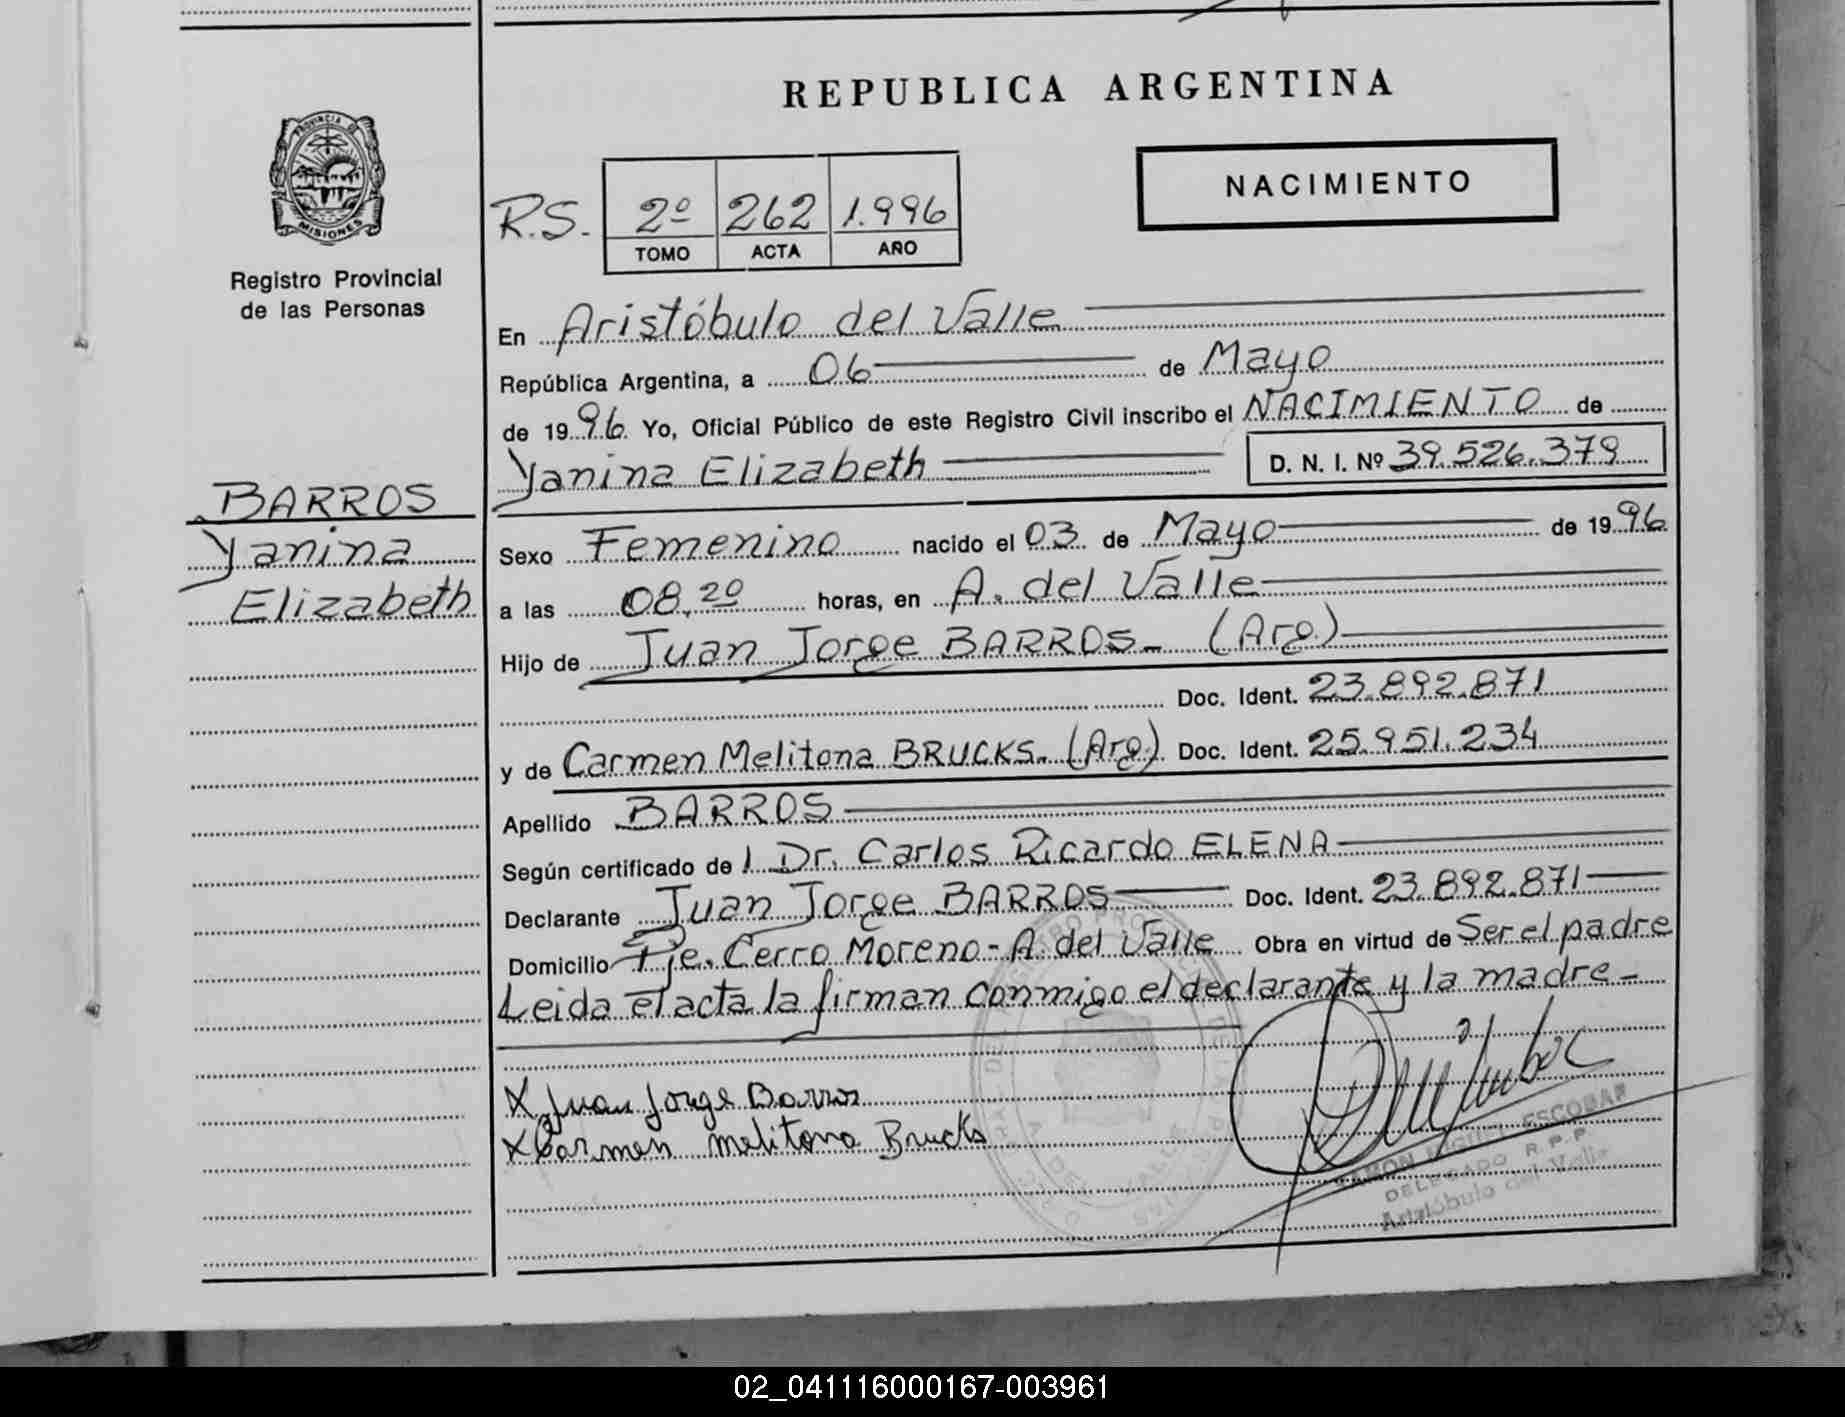 REPUBLICA ARGENTINA
PROVINCIA DE
MISIONES
Registro Provincial
de las Personas
NACIMIENTO
R.S. 2º 262 1.996
TOMO ACTA AÑO
En Aristóbulo del Valle
República Argentina, a 06 de Mayo
de 1996. Yo, Oficial Público de este Registro Civil inscribo el NACIMIENTO de
Yanina Elizabeth D. N. I. Nº 39.526.379
BARROS
Yanina
Elizabeth
Sexo Femenino nacido el 03 de Mayo de 1996
a las 08,20 horas, en A. del Valle
Hijo de Juan Jorge BARROS- (Arg.)
Doc. Ident. 23.892.871
y de Carmen Melitona BRUCKS- (Arg.) Doc. Ident. 25.951.234
Apellido BARROS
Según certificado de l Dr. Carlos Ricardo ELENA
Declarante Juan Jorge BARROS Doc. Ident. 23.892.871
Domicilio Pje. Cerro Moreno - A. del Valle Obra en virtud de Ser el padre
Leida el acta la firman conmigo el declarante y la madre -
X Juan Jorge Barros
X Carmen melitona Brucks
RAMON MIGUEL ESCOBAR
DELEGADO R.P.P.
Aristóbulo del Valle
02_041116000167-003961